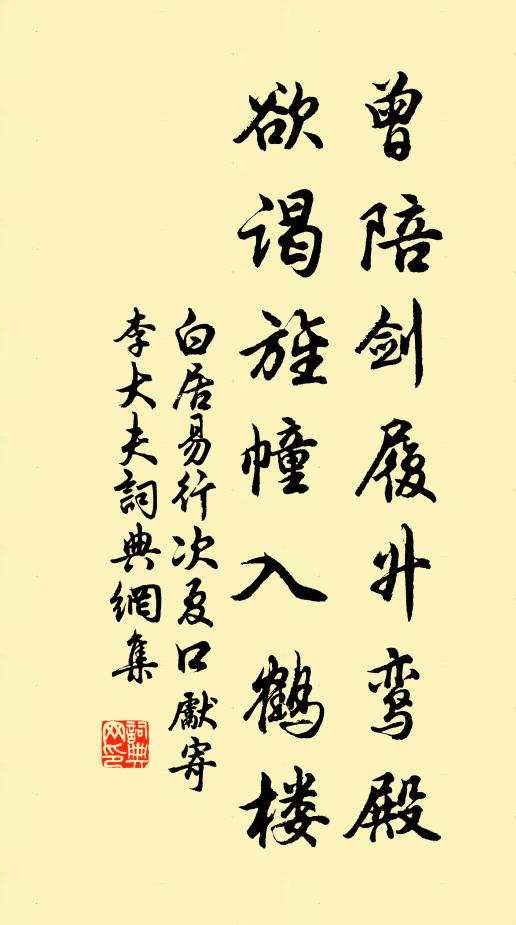 曾陪剑履升鸾殿
欲谒旌幢入鹤楼
白居易行次夏口獻寄
李大夫詞典網集
詞典網印